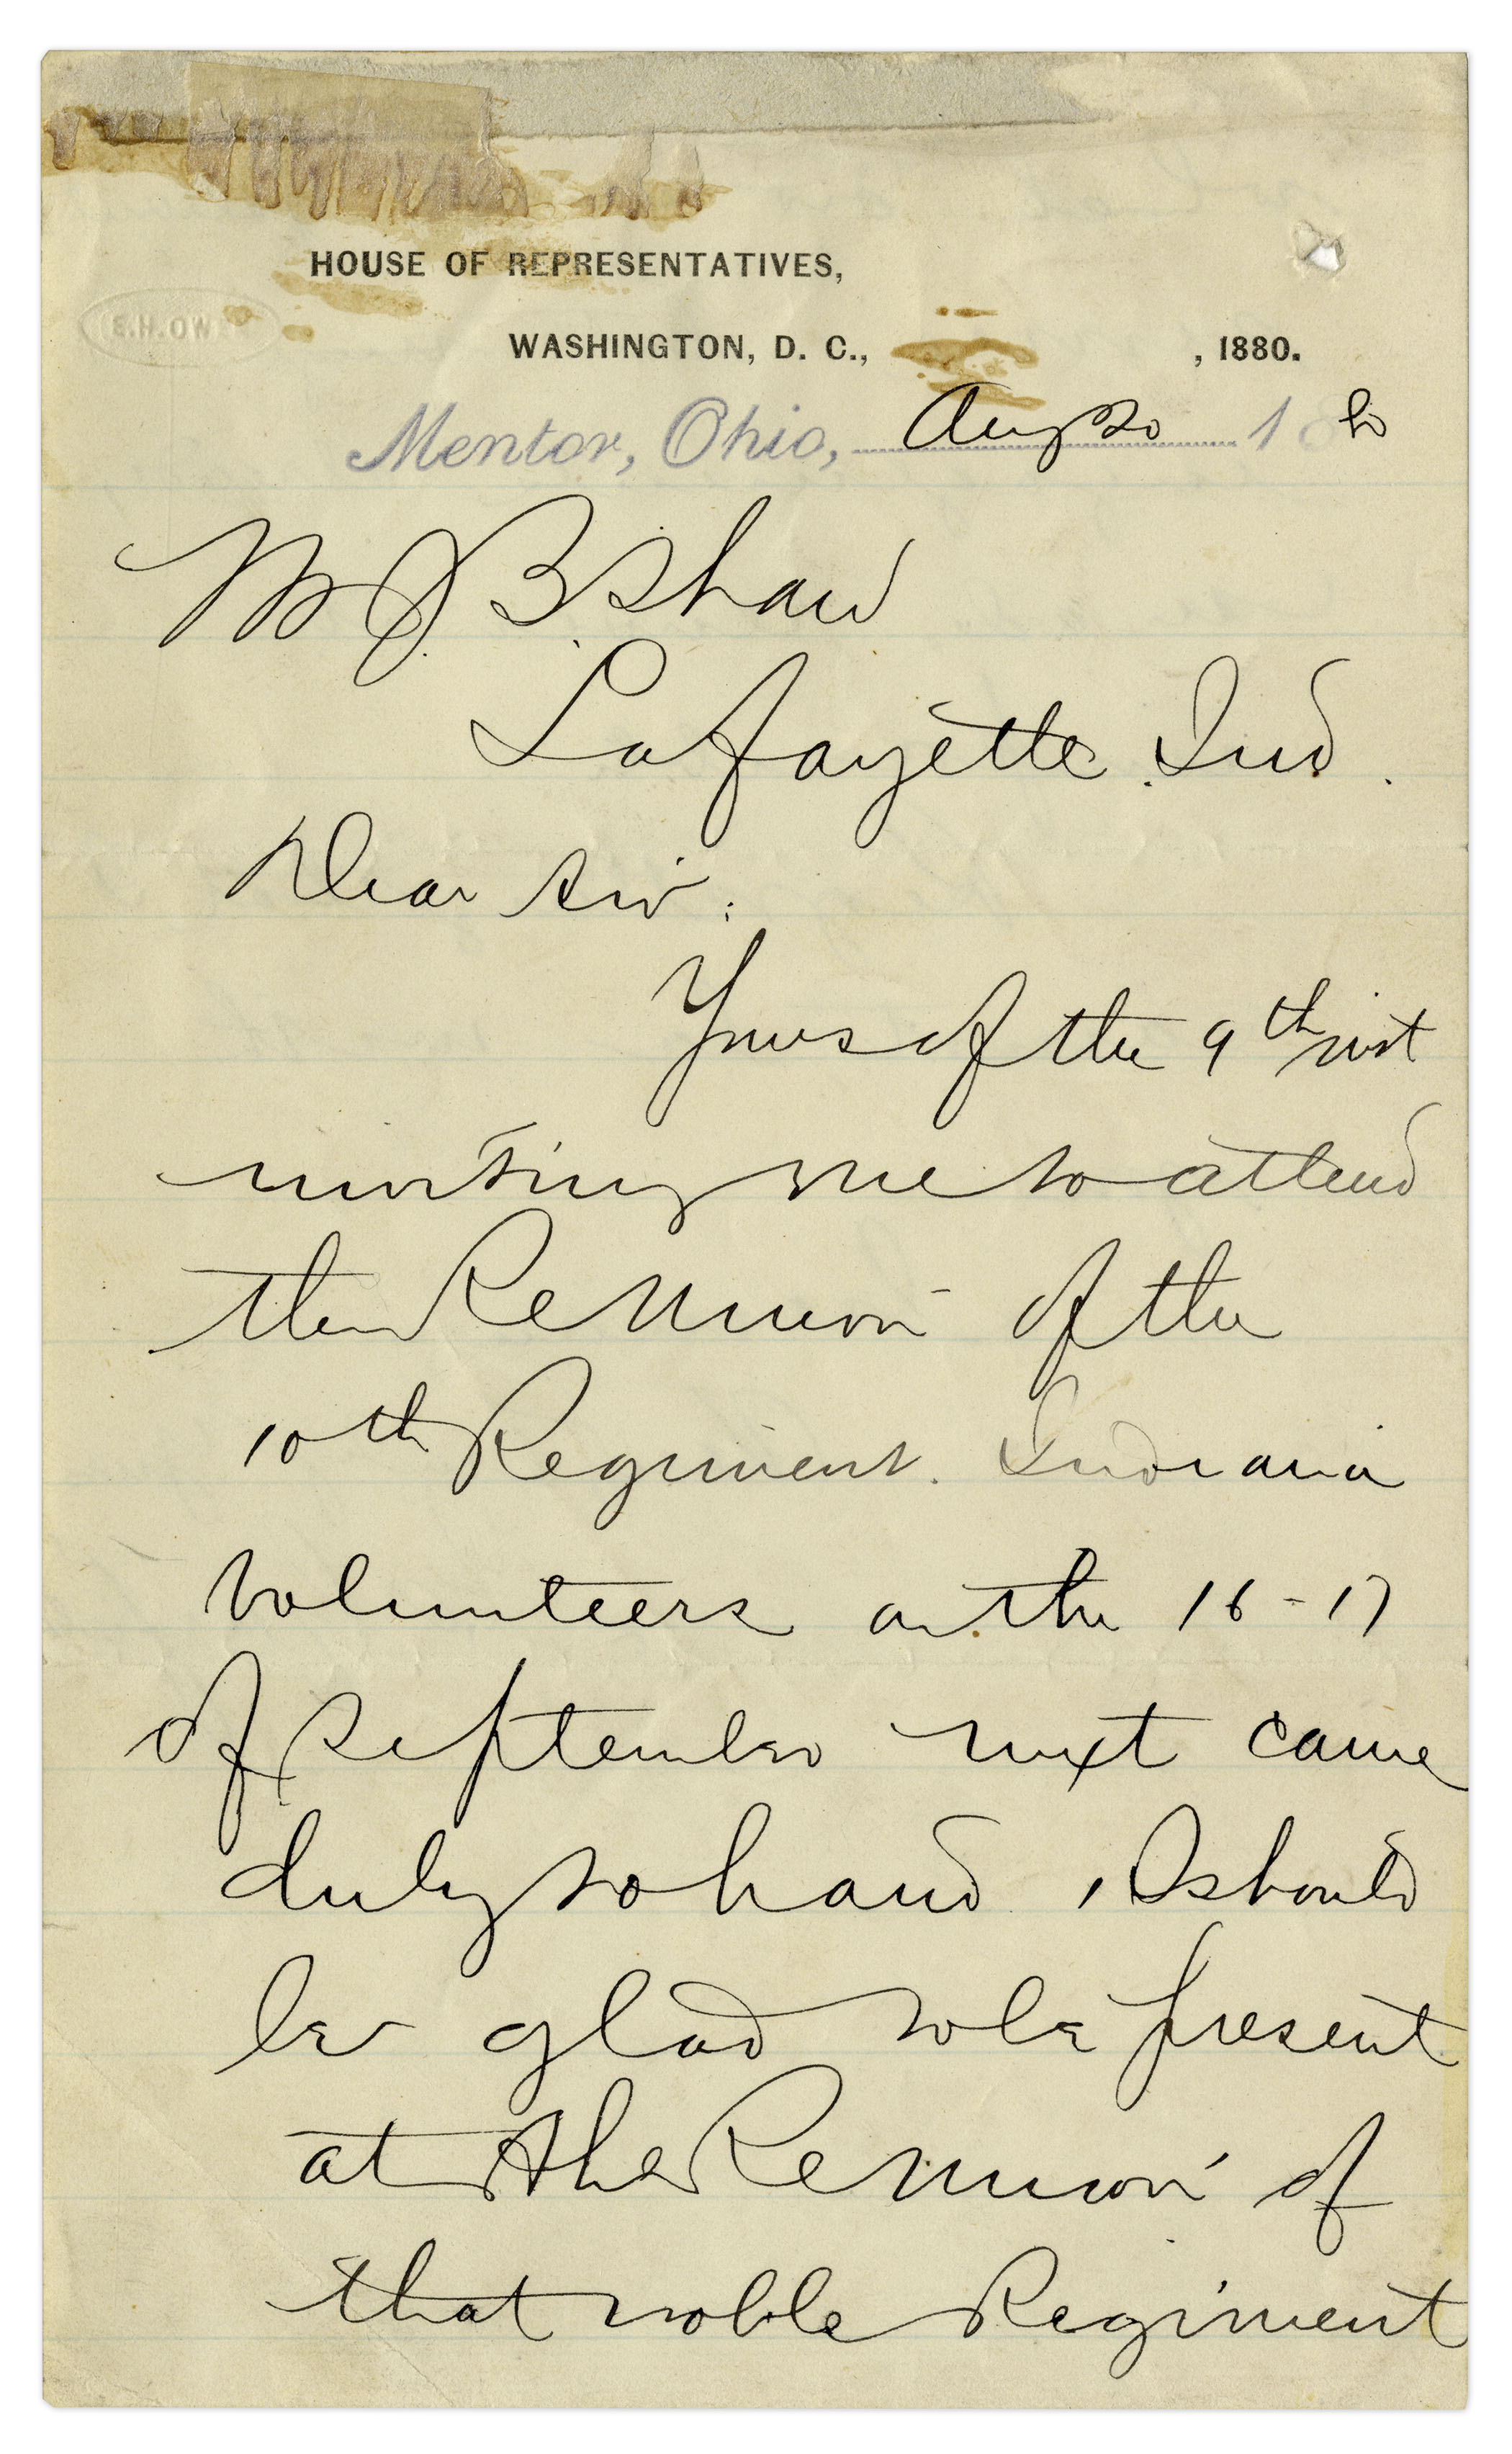 HOUSE OF REPRESENTATIVES,
WASHINGTON, D. C., , 1880.
Mentor, Ohio, Aug 20 1880
J B Shaw
Lafayette Ind.
Dear Sir:
Yours of the 9th inst
inviting me to attend
the Reunion of the
10th Regiment. Indiana
volunteers on the 16-17
of September next came
duly to hand, I should
be glad to be present
at the Reunion of
that noble Regiment